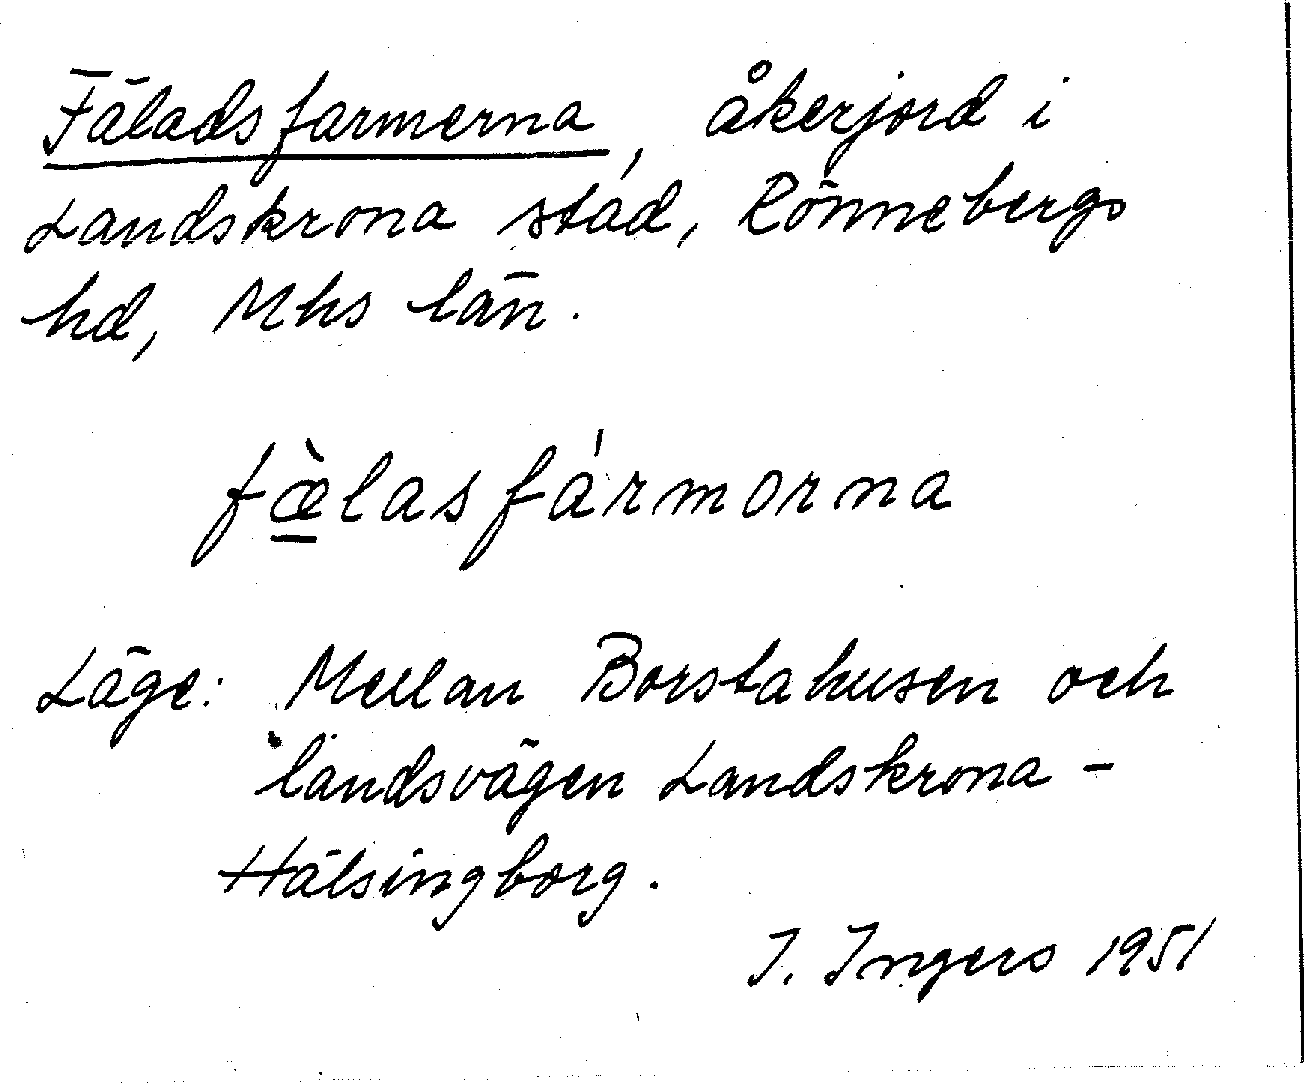 Fäladsfarmerna, åkerjord i
Landskrona stad, Rönnebergs
hd, Mhs län.
fæ̲̀lasfármorna
Läge: Mellan Borstahusen och
landsvägen Landskrona -
Hälsingborg.
I. Ingers 1951